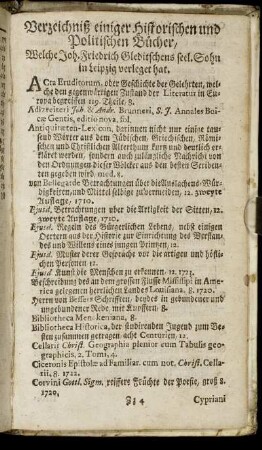 Verzeichniß einiger Historischen und
Politischen Bücher,
Welche Joh. Friedrich Gleditschens seel. Sohn
in Leipzig verleget hat.
ACta Eruditorum, oder Geschichte der Gelehrten, welche
den gegenwärtigen Zustand der Literatur in Eu-
ropa begreiffen 119. Theile. 8.
Adlzreiteri Joh. & Andr. Brunneri, S. J. Annales Boi-
cæ Gentis, editio nova, fol.
Antiquiteten-Lexicon, darinnen nicht nur einige tau-
send Wörter aus dem Jüdischen, Griechischen, Römi-
schen und Christlichen Alterthum kurtz und deutlich er-
kläret werden, sondern auch zulängliche Nachricht von
den Ordnungen dieser Völcker aus den besten Scriben-
ten gegeben wird, med. 8.
von Bellegarde Betrachtungen über die Auslachens-Wür-
digkeiten, und Mittel selbige zu vermeiden, 12. zweyte
Auflage, 1710.
Ejusd. Betrachtungen über die Artigkeit der Sitten, 12.
zweyte Auflage, 1710.
Ejusd. Regeln des Bürgerlichen Lebens, nebst einigen
Oertern aus der Historie zur Einrichtung des Verstan-
des und Willens eines jungen Printzen, 12.
Ejusd. Muster derer Gespräche vor die artigen und höflichen
Personen 12.
Ejusd. Kunst die Menschen zu erkennen. 12.
Beschreibung des an dem grossen Flusse Missisippi in Ame-
rica gelegenen herrlichen Landes Louisiana. 8. 1720.
Herrn von Bessers Schrifften, beydes in gebundener und
ungebundener Rede, mit Kupffern. 8.
Bibliotheca Menckeniana, 8.
Bibliotheca Historica, der studirenden Jugend zum Be-
sten zusammen getragen, acht Centurien, 12.
Cellarii Christ. Geographia plenior cum Tabulis geo-
graphicis, 2. Tomi, 4.
Ciceronis Epistolæ ad Familiar. cum not. Christ. Cella-
rii, 8. 1722.
Corvini Gottl. Sigm. reiffere Früchte der Poesie, groß 8.
1720,
Zz 4 Cypriani